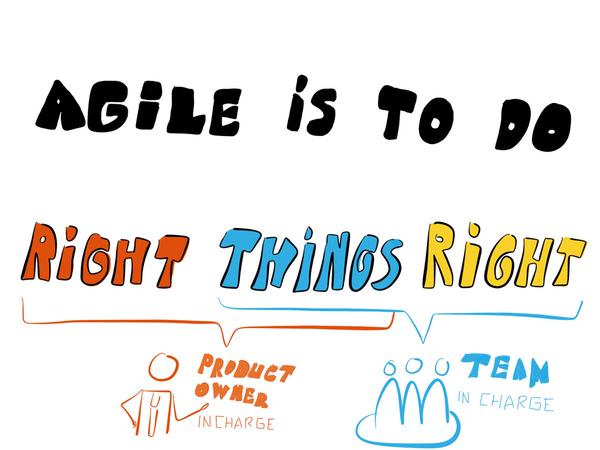 AGiLE iS TO DO
RiGHT THiNGS RiGHT
PRODUCT
OWNER
IN CHARGE
TEAM
IN CHARGE